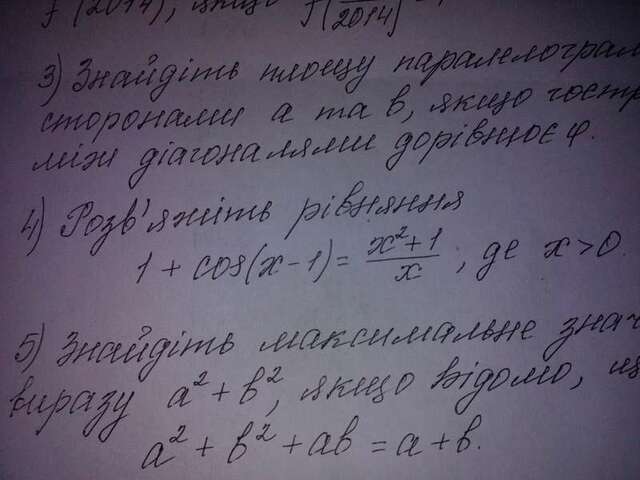 f(2014), якщо f(/2014)
3) Знайдіть площу
сторонами a та b, якщо
між діагоналями дорівнює φ.
4) Розв'яжіть рівняння
1 + cos(x-1) = (x²+1)/x, де x>0.
5) Знайдіть максимальне
виразу a²+b², якщо відомо,
a² + b² + ab = a + b.